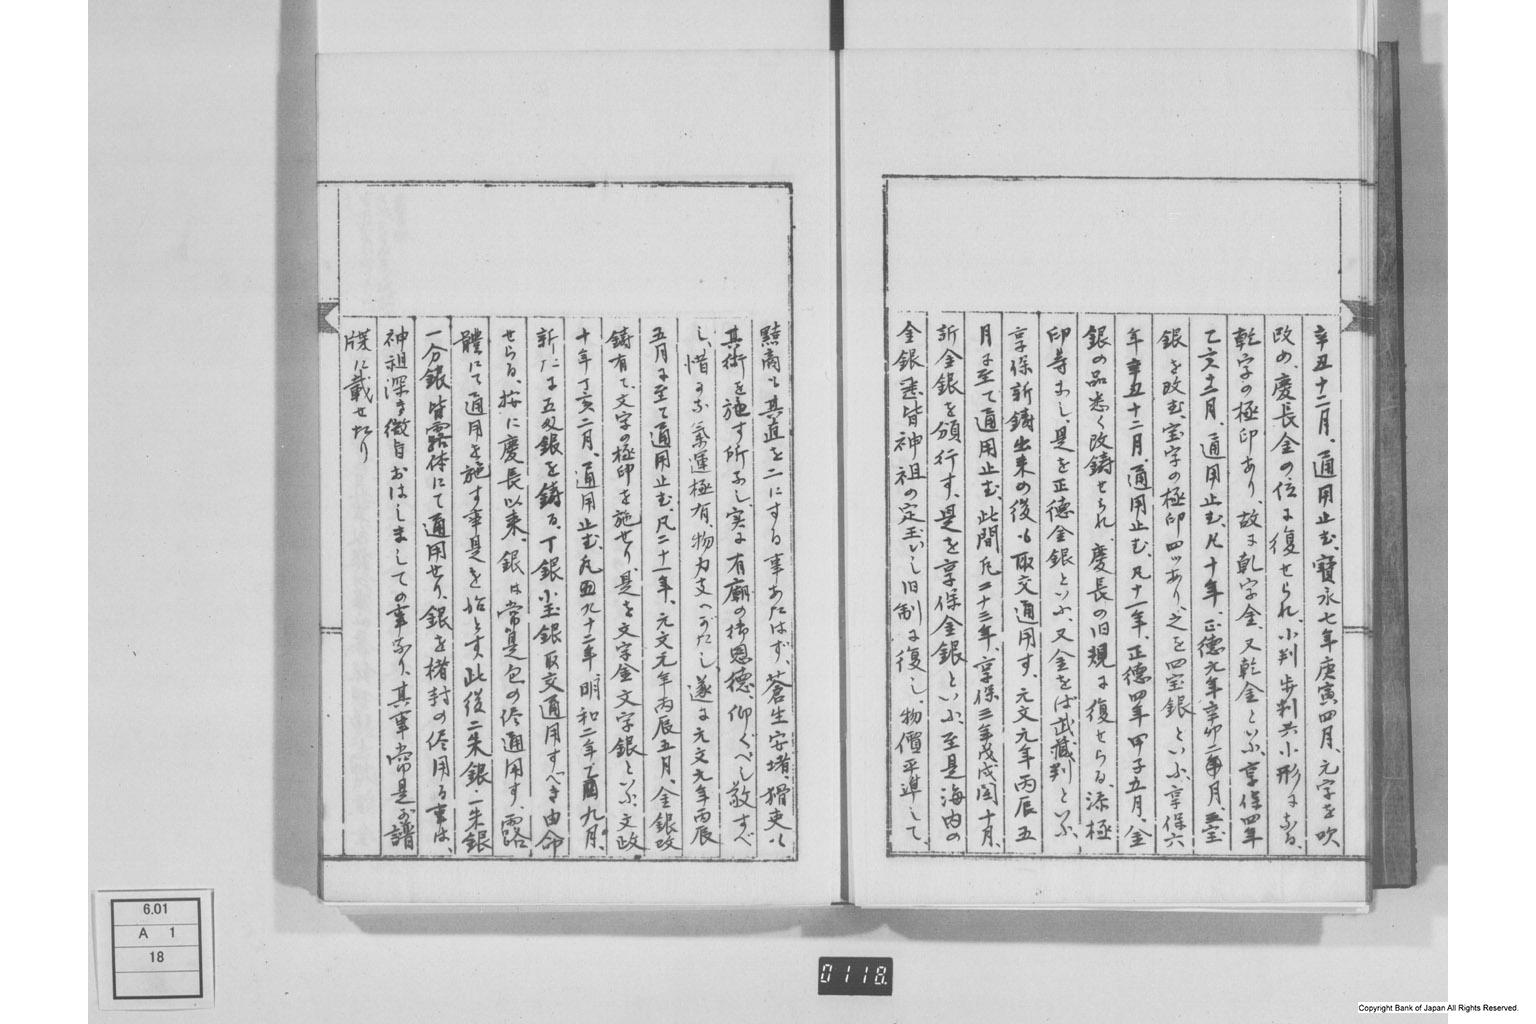 辛丑十二月、通用止む、寶永七年庚寅四月、元字を吹
改め、慶長金の位に復せられ、小判歩判共小形になる、
乾字の極印あり、故に乾字金、又乾金といふ、享保四年
乙亥十二月、通用止む、凡十年、正徳元年辛卯二月、三宝
銀を改む、宝字の極印四ツあり、之を四宝銀といふ、享保六
年辛丑十二月、通用止む、凡十一年、正徳四年甲子五月、金
銀の品悉く改鋳せられ、慶長の旧規に復せらる、添極
印等なし、是を正徳金銀といふ、又金をは武蔵判といふ、
享保新鋳出来の後も取交通用す、元文元年丙辰五
月に至て通用止む、此間凡二十三年、享保三年戊戌閏十月、
新金銀を頒行す、是を享保金銀といふ、至是海内の
金銀悉皆神祖の定玉いし旧制に復し、物價平準して、
黠商も其直を二にする事あたはず、蒼生安堵、猾吏も
其術を施す所なし、実に有廟の御恩德、仰ぐべし敬すべ
し、惜かな氣運極有、物力支へがたし、遂に元文元年丙辰
五月に至て通用止む、凡二十一年、元文元年丙辰五月、金銀改
鋳有て、文字の極印を施せり、是を文字金文字銀といふ、文政
十年丁亥二月、通用止む、凡九十二年、明和二年乙酉九月、
新たに五匁銀を鋳る、丁銀小玉銀取交通用すべき由命
せらる、按に慶長以来、銀は常是包の侭通用す、露
體にて通用を施す事是を始とす、此後二朱銀、一朱銀
一分銀、皆露体にて通用せり、銀を楮封の侭用る事は、
神祖深き微旨おはしましての事なり、其事常是が譜
牒に載せたり
6.01
A 1
18
0118.
Copyright Bank of Japan All Rights Reserved.